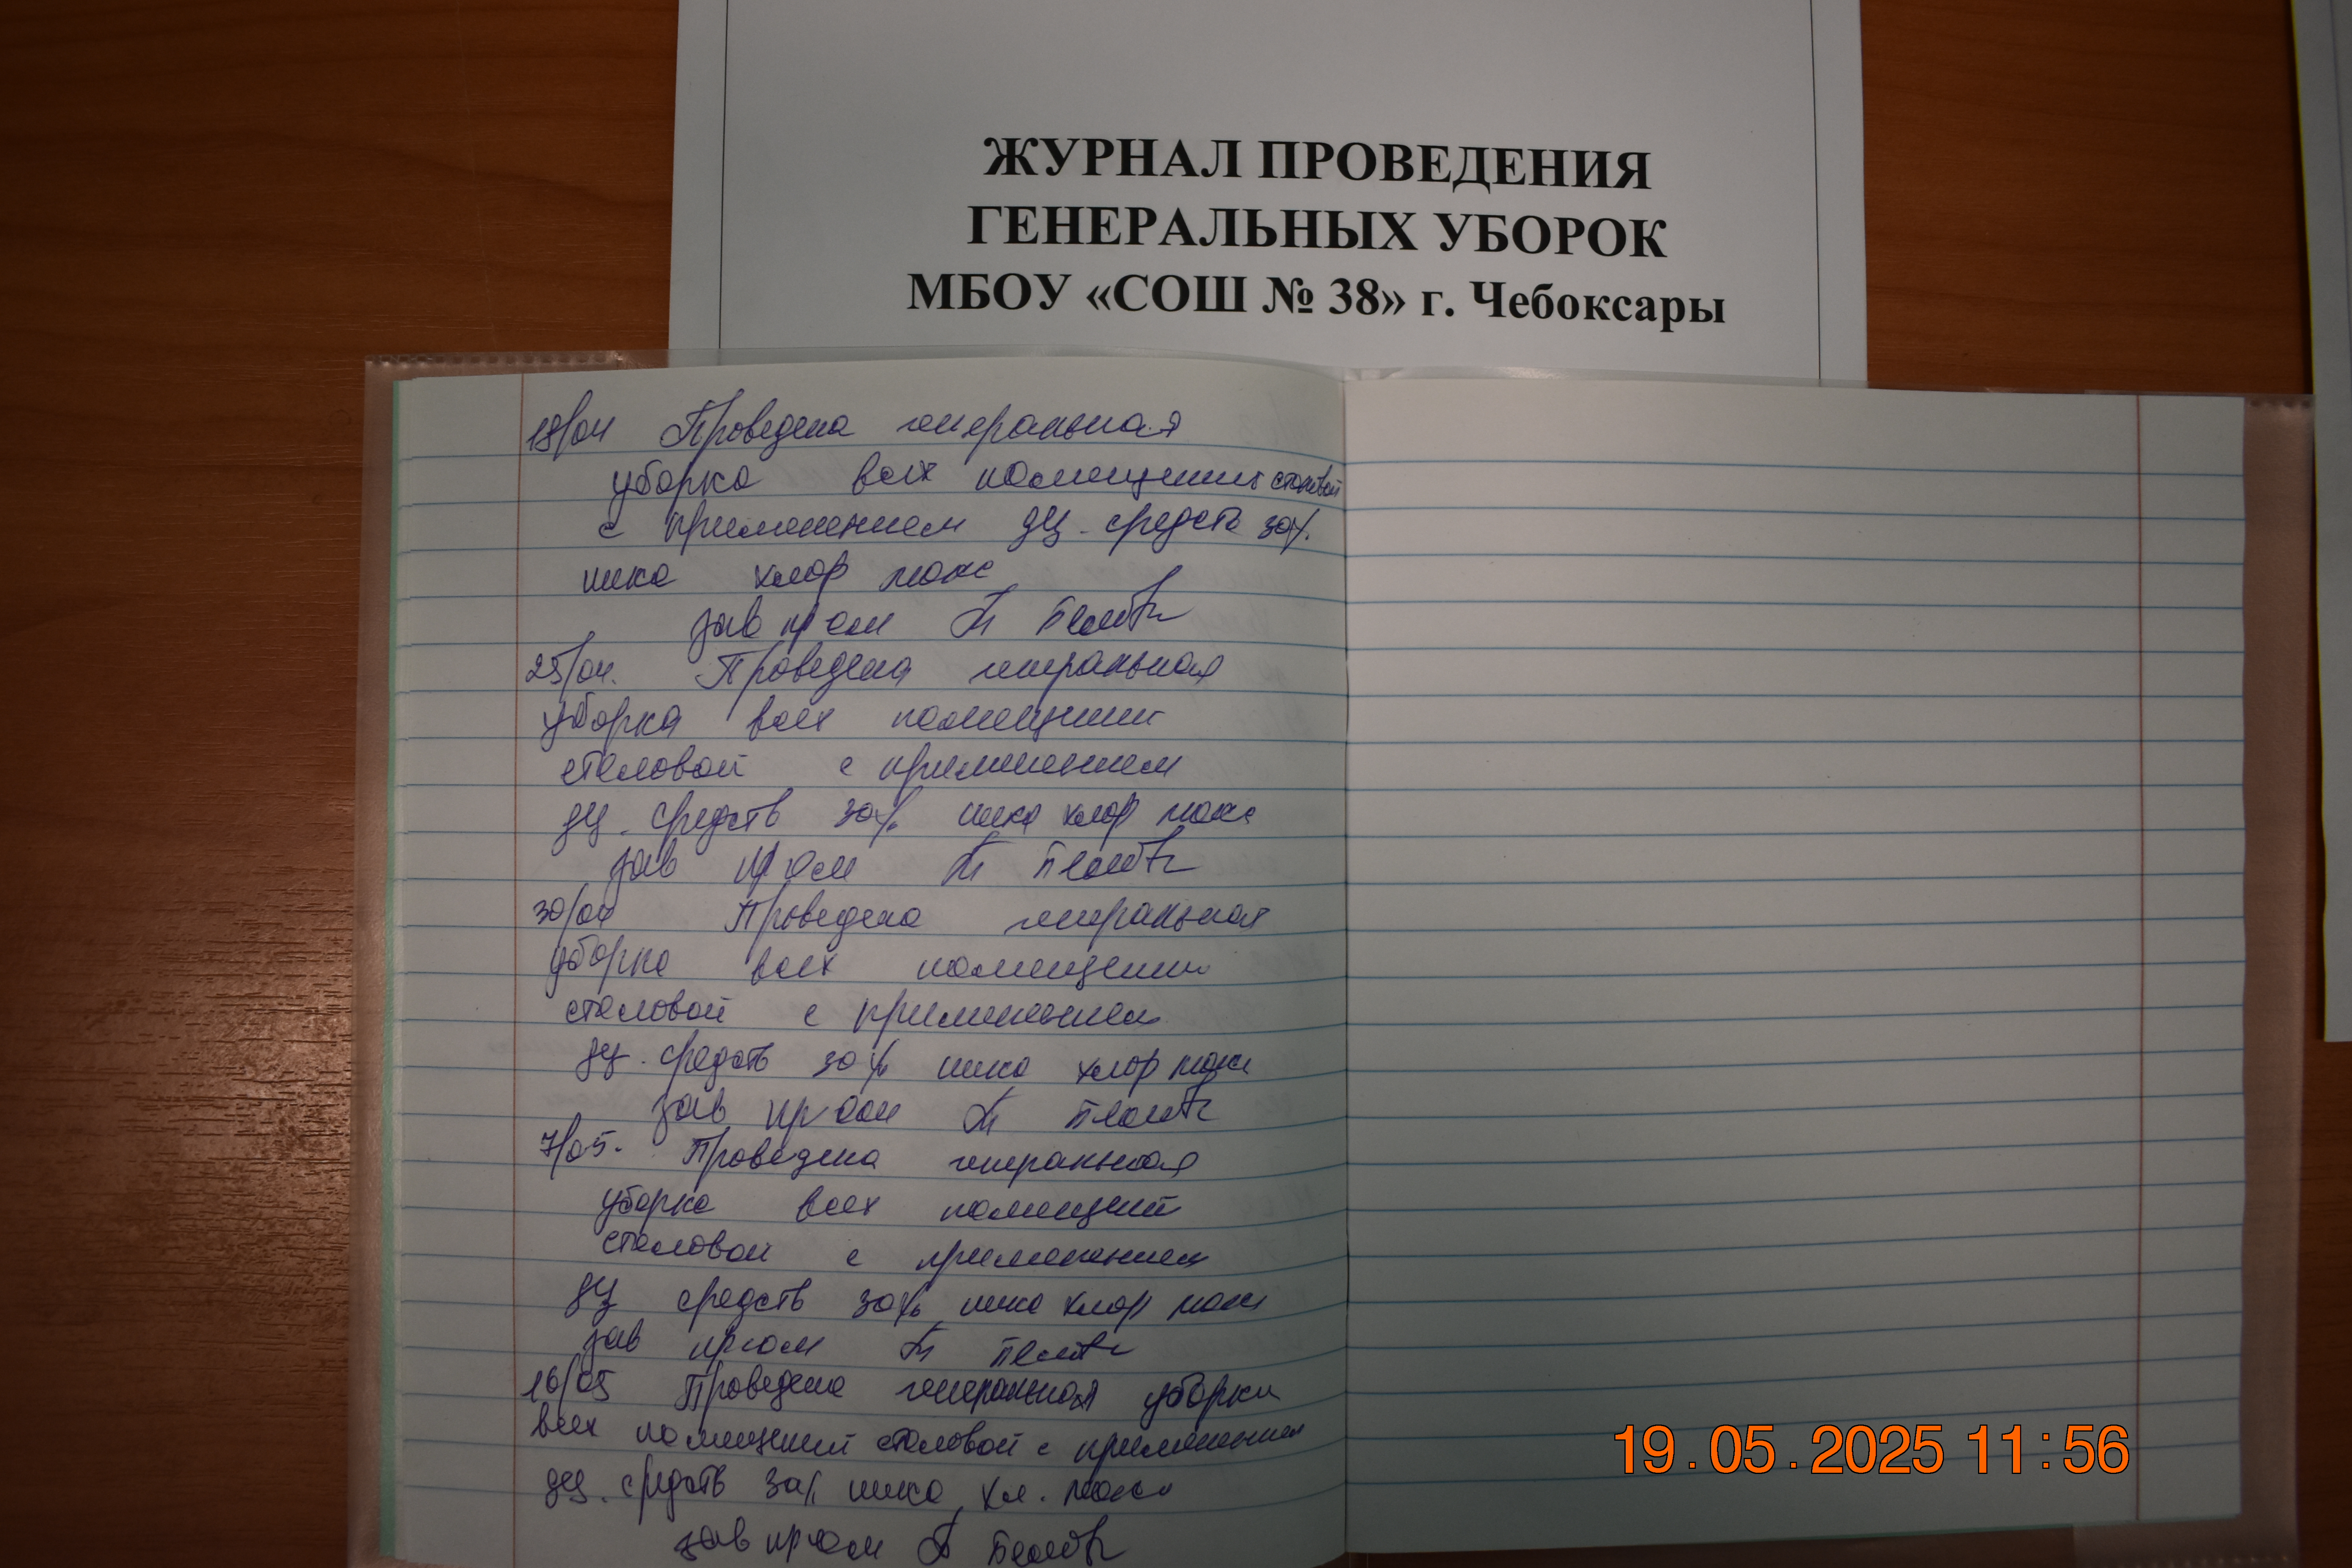 ЖУРНАЛ ПРОВЕДЕНИЯ
ГЕНЕРАЛЬНЫХ УБОРОК
МБОУ «СОШ № 38» г. Чебоксары
18/04 Проведена генеральная
уборка всех помещений столовой
с применением дез. средств 30%
ника хлор макс
зав пр ом
25/04. Проведена генеральная
уборка всех помещений
столовой с применением
дез. средств 30% ника хлор макс
зав пр ом
30/04 Проведена генеральная
уборка всех помещений
столовой с применением
дез. средств 30% ника хлор макс
зав пр ом
7/05. Проведена генеральная
уборка всех помещений
столовой с применением
дез средств 30% ника хлор макс
зав пр ом
16/05 Проведена генеральная уборки
всех помещений столовой с применением
дез. средств 30% ника хл. макс
зав пр ом
19.05.2025 11:56